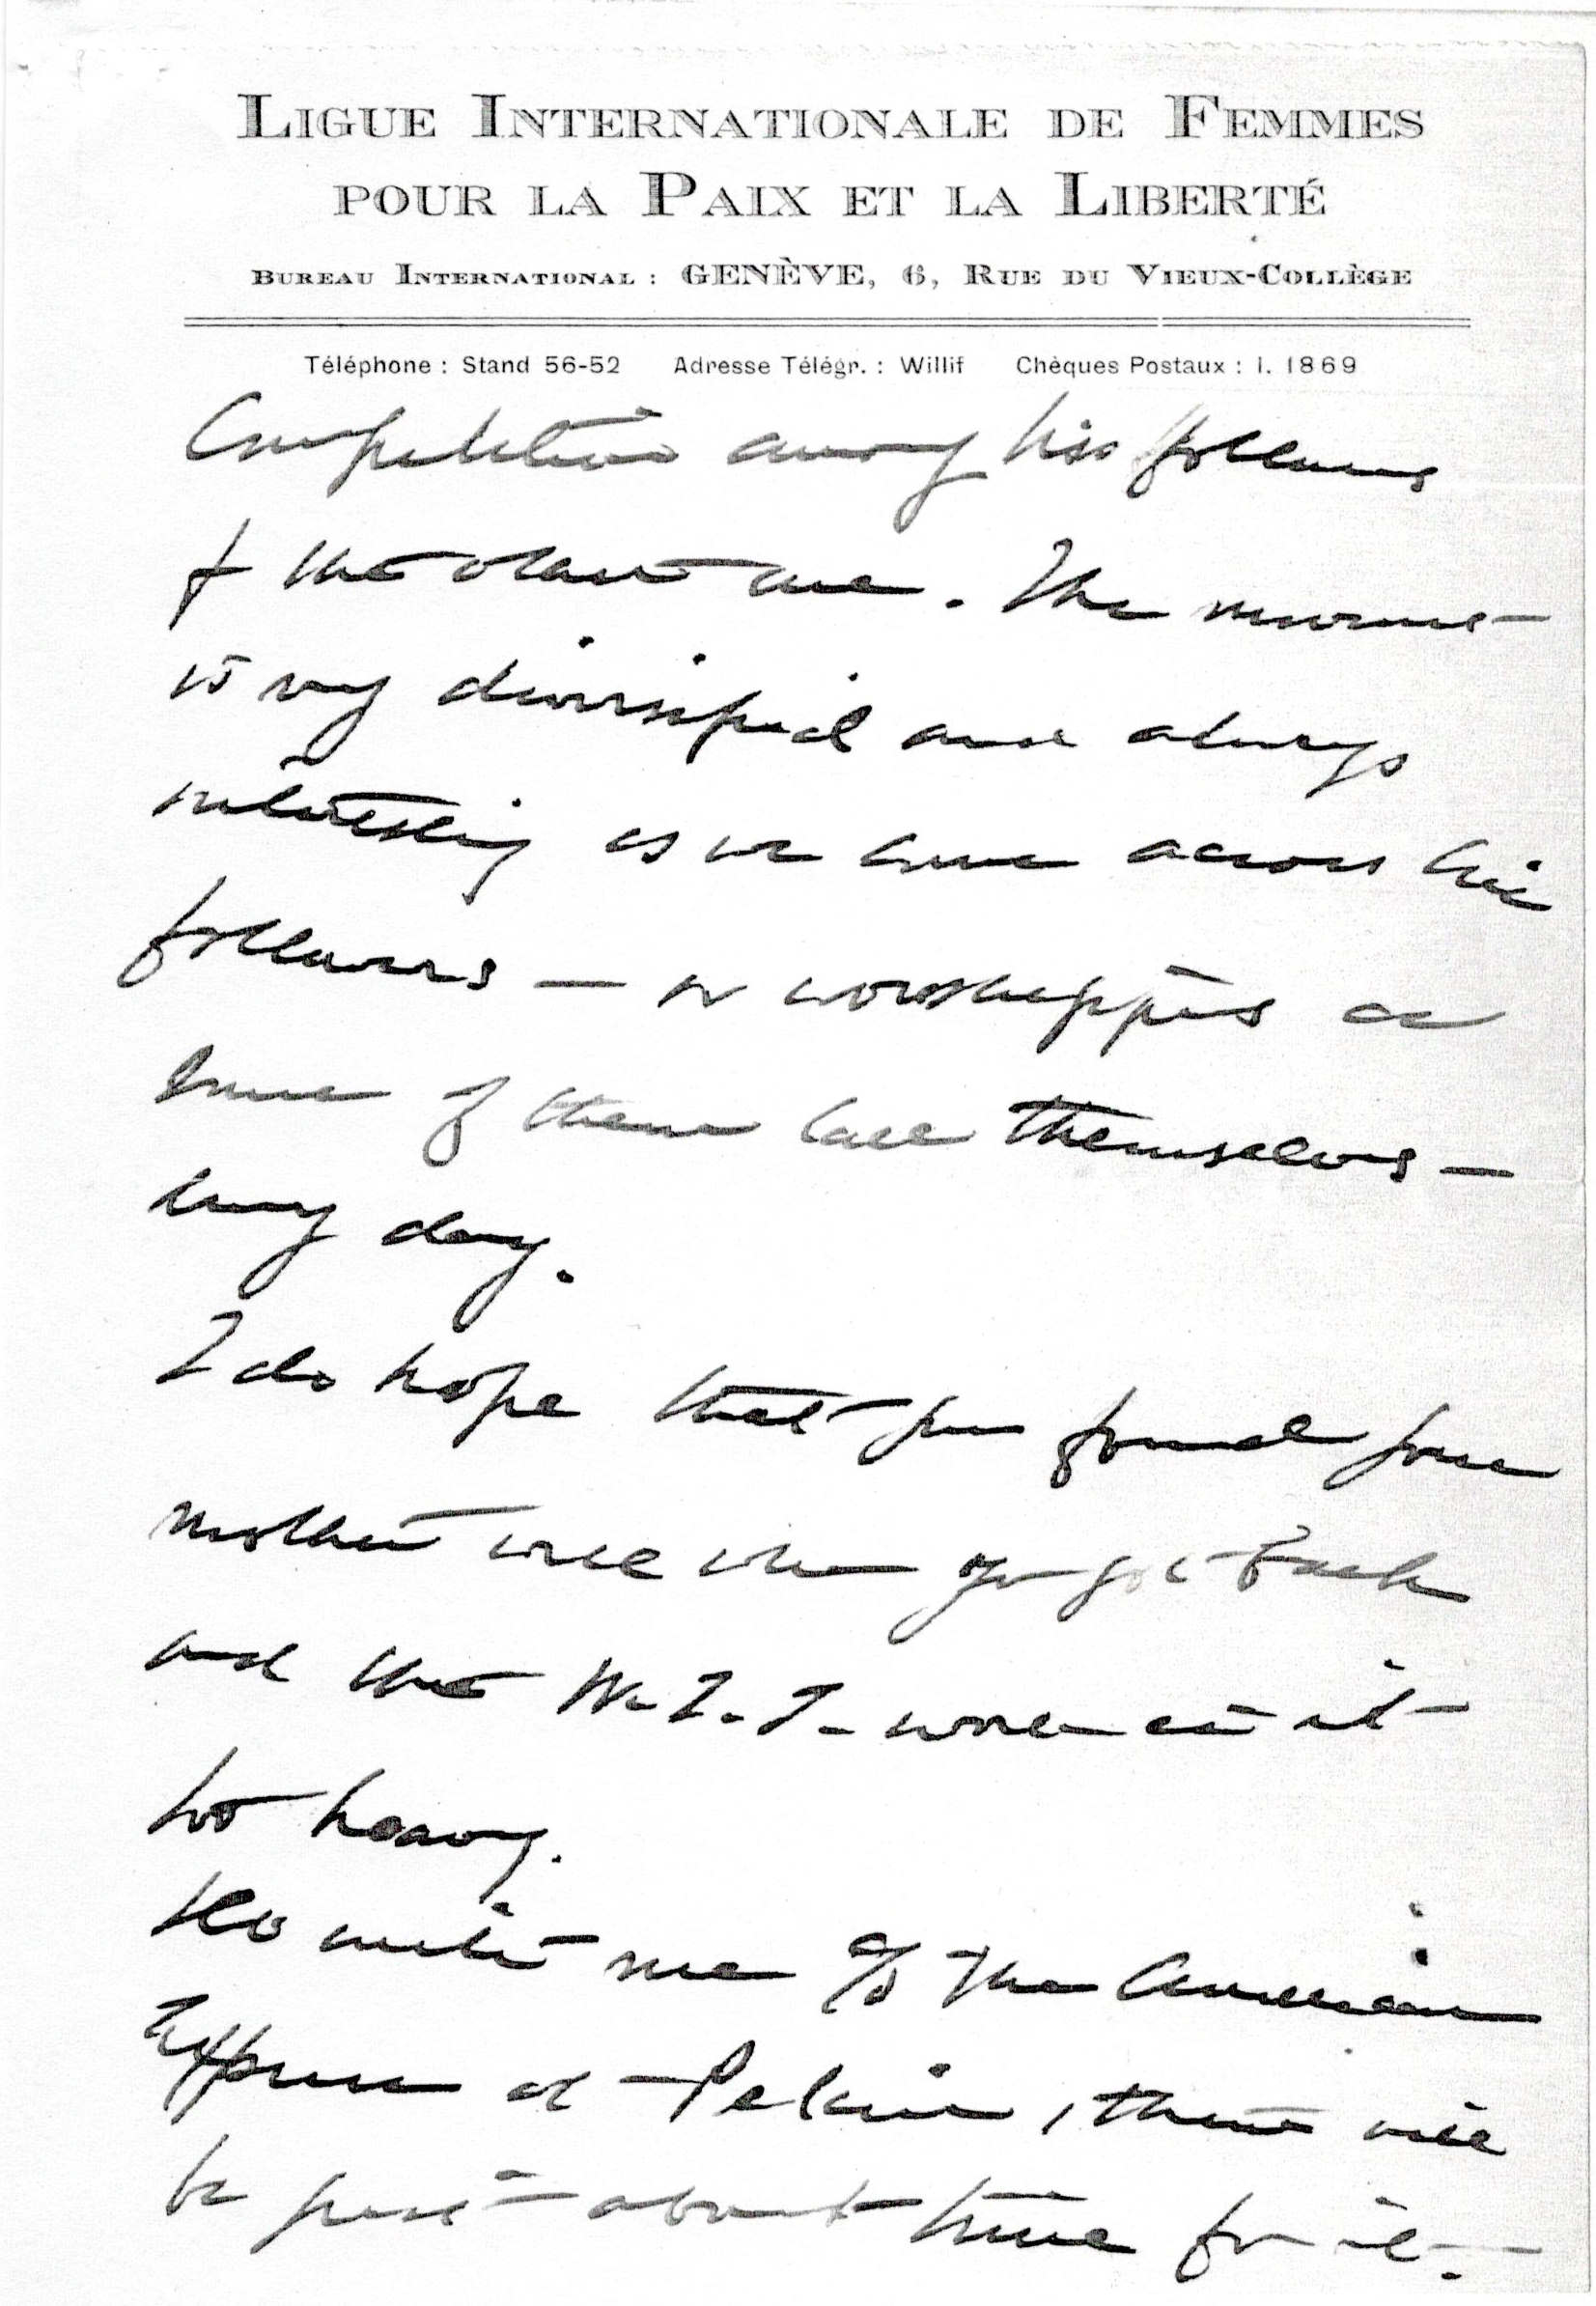 LIGUE INTERNATIONALE DE FEMMES
POUR LA PAIX ET LA LIBERTÉ
BUREAU INTERNATIONAL : GENÈVE, 6, RUE DU VIEUX-COLLÈGE
Téléphone : Stand 56-52 Adresse Télégr. : Willif Chèques Postaux : I. 1869
Competition among his followers
& the. The movement
is very diversified and always
interesting as we come across his
followers — or worshippers as
some of them call themselves —
every day.
I do hope that you found your
mother well when you got back
and that W. I. L. work isn't
too heavy.
Do write me c/o The American
Express at Pekin, there will
be just about time for it.